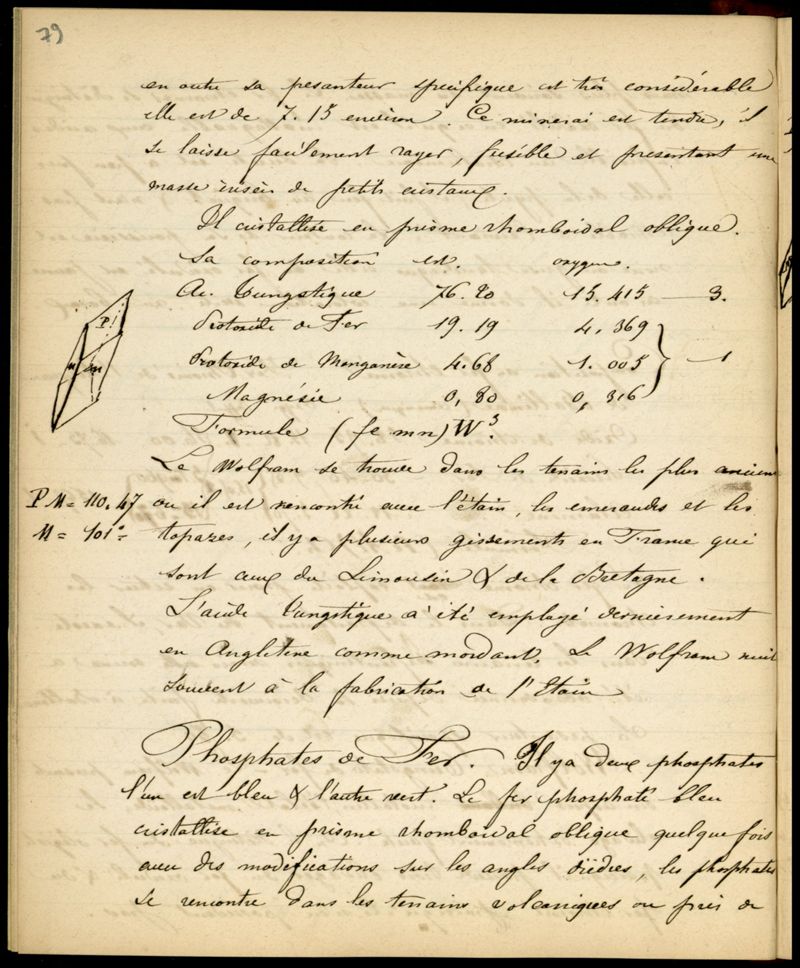 79
en outre sa pesanteur spécifique est très considérable
elle est de 7.15 environ. Ce minerai est tendre, il
se laisse facilement rayer, fusible et présentant une
masse de petits cristaux.
Il cristallise en prisme rhomboidal oblique.
Sa composition est. oxygene.
Ac. Tungstique 76.20 15.415 — 3.
Protoxide de Fer 19.19 4.369
Protoxide de Manganèse 4.68 1.005 } — 1
Magnésie 0,80 0,316
P
m m
Formule (fe mn) W³.
Le Wolfram se trouve dans les terrains les plus anciens
PM = 110.47 ou il est rencontré avec l'étain, les emeraudes et les
M = 101° = topazes, il y a plusieurs gissements en France qui
sont ceux du Limousin & de la Bretagne.
L'acide Tungstique a été employé dernierement
en Angleterre comme mordant. Le Wolfram nuit
souvent à la fabrication de l'Etain
Phosphates de Fer. Il y a deux phosphates
l'un est bleu & l'autre vert. Le fer phosphaté bleu
cristallise en prisme rhomboidal oblique quelque fois
avec des modifications sur les angles dièdres, les phosphates
se rencontre dans les terrains volcaniques ou près de